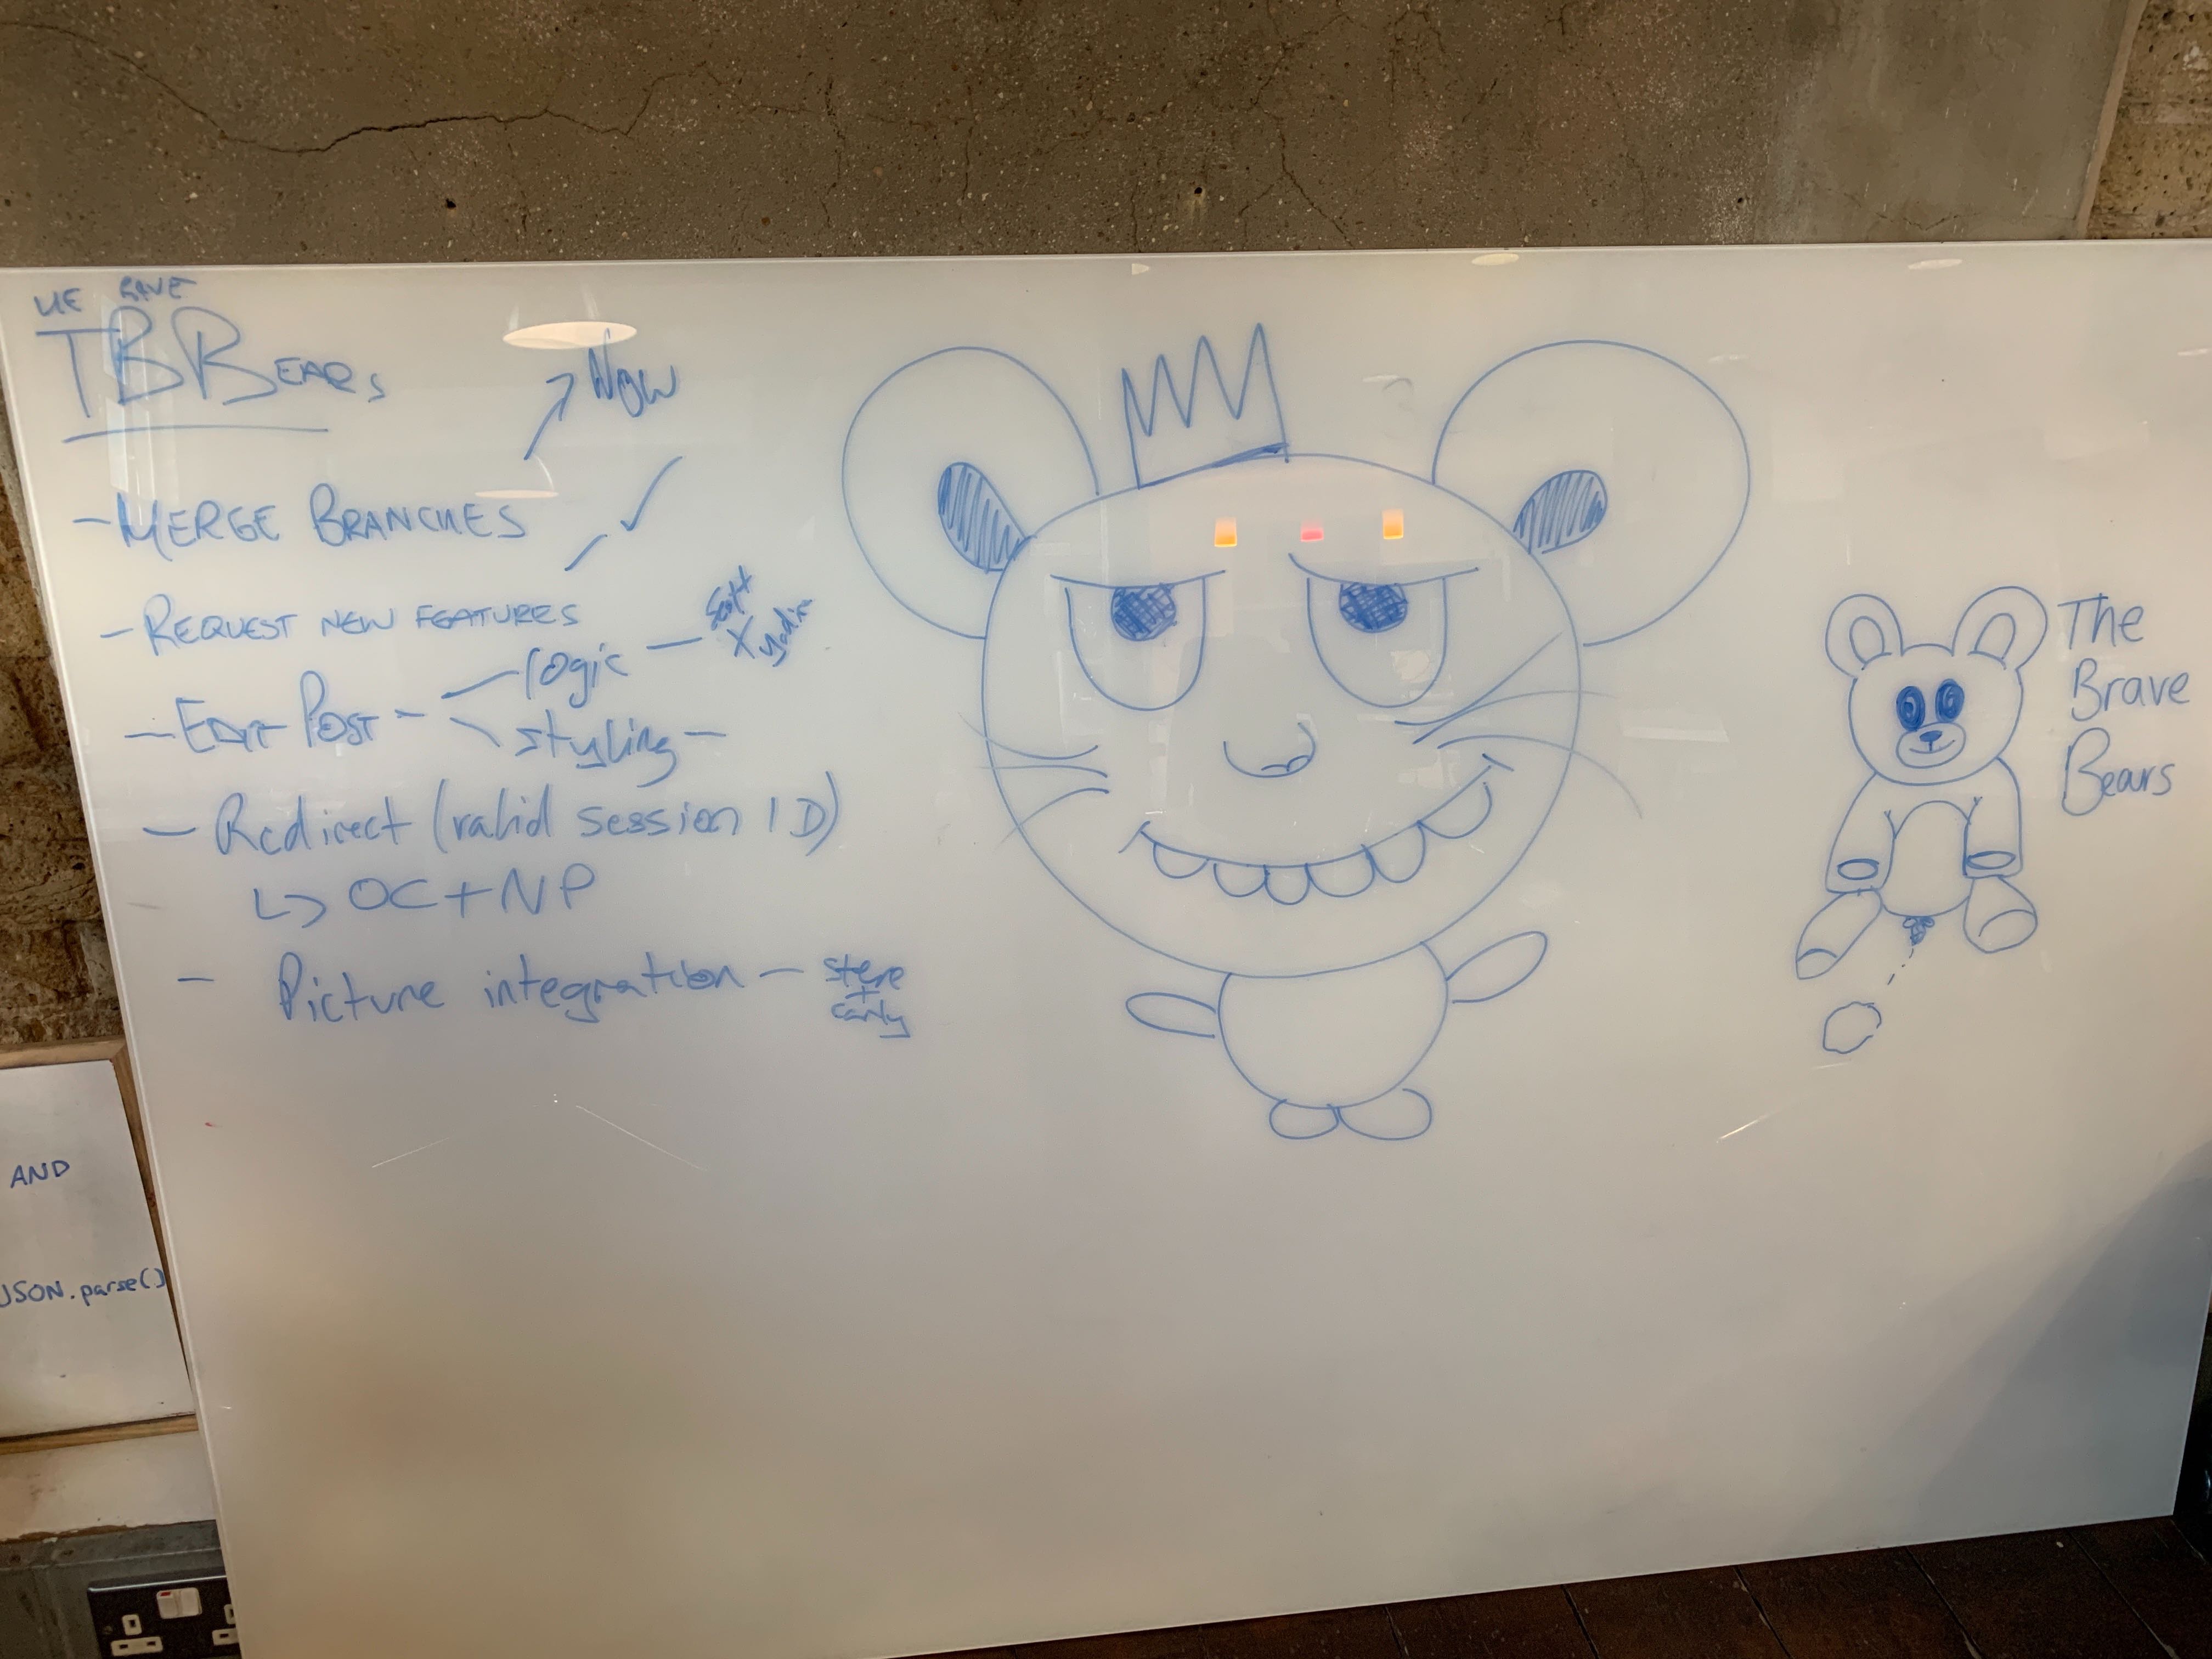 HE RAVE
TBBEARS
→ NOW
- MERGE BRANCHES
- REQUEST NEW FEATURES ✓
- EDIT POST - logic - Scott X
styling -
- Redirect (valid session ID)
↳ OC + NP
- Picture integration - steve
+
carly
The
Brave
Bears
AND
JSON.parse()